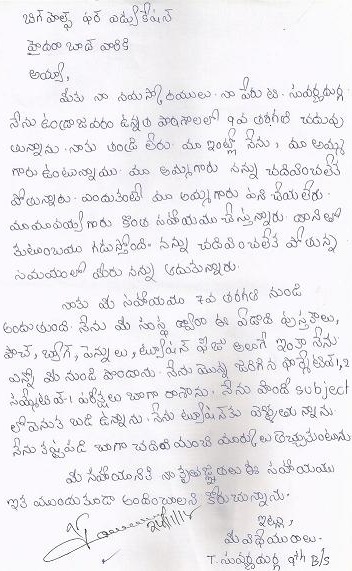 బిగ్ హెల్ప్ ఫర్ ఎడ్యుకేషన్
హైదరాబాద్ వారికి
అయ్యా,
మీకు నా నమస్కారములు. నా పేరు టి. సువర్ణదుర్గ
నేను ఉండ్రాజవరం ఉన్నత పాఠశాలలో 9వ తరగతి చదువు
తున్నాను. నాకు తండ్రి లేరు. మా ఇంట్లో నేను, మా అమ్మ
గారు ఉంటున్నాము. మా అమ్మగారు నన్ను చదివించలేక
పోతున్నారు. ఎందుకంటే మా అమ్మగారు పని చేయలేరు.
మామావయ్యగారు కొంత సహాయము చేస్తున్నారు. దానితో
కుటుంబము గడుస్తోంది. నన్ను చదివించలేక పోతున్న
సమయంలో మీరు నన్ను ఆదుకున్నారు.
నాకు మీ సహాయము 7వ తరగతి నుండి
అందుతుంది. నేను మీ సంస్థ ద్వారా ఈ ఏడాది పుస్తకాలు,
పౌచ్, బ్యాగ్, పెన్నులు, ట్యూషన్ ఫీజు అలాగే ఇంకా నేను
ఎన్నో మీ నుండి పొందాను. నేను మొన్న జరిగిన ఫార్మేటివ్ 1,2
సమ్మేటివ్-1 పరీక్షలు బాగా రాసాను. నేను హిందీ subject
లో వెనుకబడి ఉన్నాను. నేను ట్యూషన్‌కు వెళ్ళుతున్నాను
నేను కష్టపడి బాగా చదివి మంచి మార్కులు తెచ్చుకుంటాను
మీ సహాయానికి నా కృతజ్ఞతలు ఈ సహాయము
ఇక ముందుకూడా అందించాలని కోరుచున్నాను.
ఇట్లు,
మీ విధేయురాలు.
T. సువర్ణదుర్గ 9th B/S